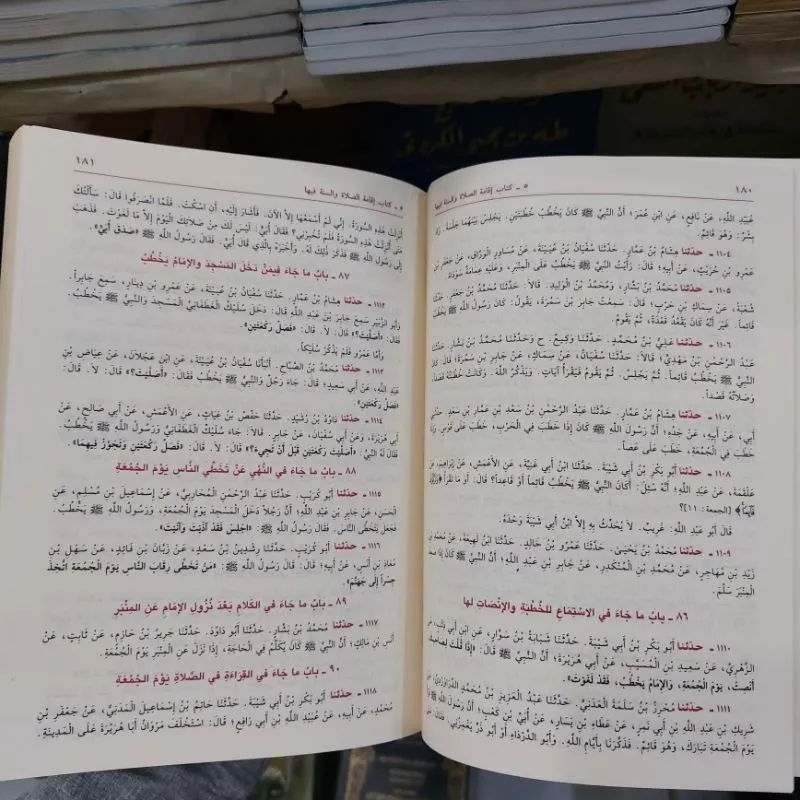 ١٨٠
٥ - كتاب إقامة الصلاة والسنة فيها
عُبَيْدِ اللَّهِ، عَنْ نَافِعٍ، عَنِ ابْنِ عُمَرَ؛ أَنَّ النَّبِيَّ ﷺ كَانَ يَخْطُبُ خُطْبَتَيْنِ. يَجْلِسُ بَيْنَهُمَا جَلْسَةً. زَادَ
بِشْرٌ: وَهُوَ قَائِمٌ.
١١٠٤ - حدثنا هِشَامُ بْنُ عَمَّارٍ. حَدَّثَنَا سُفْيَانُ بْنُ عُيَيْنَةَ، عَنْ مُسَاوِرٍ الْوَرَّاقِ، عَنْ جَعْفَرِ بْنِ
عَمْرِو بْنِ حُرَيْثٍ، عَنْ أَبِيهِ؛ قَالَ: رَأَيْتُ النَّبِيَّ ﷺ يَخْطُبُ عَلَى الْمِنْبَرِ، وَعَلَيْهِ عِمَامَةٌ سَوْدَاءُ.
١١٠٥ - حدثنا مُحَمَّدُ بْنُ بَشَّارٍ، وَمُحَمَّدُ بْنُ الْوَلِيدِ. قَالاَ: حَدَّثَنَا مُحَمَّدُ بْنُ جَعْفَرٍ. حَدَّثَنَا
شُعْبَةُ، عَنْ سِمَاكِ بْنِ حَرْبٍ؛ قَالَ: سَمِعْتُ جَابِرَ بْنَ سَمُرَةَ، يَقُولُ: كَانَ رَسُولُ اللَّهِ ﷺ يَخْطُبُ
قَائِماً. غَيْرَ أَنَّهُ كَانَ يَقْعُدُ قَعْدَةً، ثُمَّ يَقُومُ.
١١٠٦ - حدثنا عَلِيُّ بْنُ مُحَمَّدٍ. حَدَّثَنَا وَكِيعٌ. ح وَحَدَّثَنَا مُحَمَّدُ بْنُ بَشَّارٍ. حَدَّثَنَا
عَبْدُ الرَّحْمٰنِ بْنُ مَهْدِيٍّ؛ قَالاَ: حَدَّثَنَا سُفْيَانُ، عَنْ سِمَاكٍ، عَنْ جَابِرِ بْنِ سَمُرَةَ؛ قَالَ: كَانَ
النَّبِيُّ ﷺ يَخْطُبُ قَائِماً. ثُمَّ يَجْلِسُ. ثُمَّ يَقُومُ فَيَقْرَأُ آيَاتٍ. وَيَذْكُرُ اللَّهَ. وَكَانَتْ خُطْبَتُهُ قَصْداً،
وَصَلاَتُهُ قَصْداً.
١١٠٧ - حدثنا هِشَامُ بْنُ عَمَّارٍ. حَدَّثَنَا عَبْدُ الرَّحْمٰنِ بْنُ سَعْدِ بْنِ عَمَّارِ بْنِ سَعْدٍ. حَدَّثَنِي
أَبِي، عَنْ أَبِيهِ، عَنْ جَدِّهِ؛ أَنَّ رَسُولَ اللَّهِ ﷺ كَانَ إِذَا خَطَبَ فِي الْحَرْبِ، خَطَبَ عَلَى قَوْسٍ. وَإِذَا
خَطَبَ فِي الْجُمُعَةِ، خَطَبَ عَلَى عَصاً.
١١٠٨ - حدثنا أَبُو بَكْرِ بْنُ أَبِي شَيْبَةَ. حَدَّثَنَا ابْنُ أَبِي غَنِيَّةَ، عَنِ الأَعْمَشِ، عَنْ إِبْرَاهِيمَ، عَنْ
عَلْقَمَةَ، عَنْ عَبْدِ اللَّهِ؛ أَنَّهُ سُئِلَ: أَكَانَ النَّبِيُّ ﷺ يَخْطُبُ قَائِماً أَوْ قَاعِداً؟ قَالَ: أَوَ مَا تَقْرَأُ
قَائِماً﴾ [الجمعة: ١١]؟
قَالَ أَبو عَبْدِ اللَّهِ: غَرِيبٌ. لاَ يُحَدِّثُ بِهِ إِلاَّ ابْنُ أَبِي شَيْبَةَ وَحْدَهُ.
١١٠٩ - حدثنا مُحَمَّدُ بْنُ يَحْيَىٰ. حَدَّثَنَا عَمْرُو بْنُ خَالِدٍ. حَدَّثَنَا ابْنُ لَهِيعَةَ، عَنْ مُحَمَّدِ بْنِ
زَيْدِ بْنِ مُهَاجِرٍ، عَنْ مُحَمَّدِ بْنِ الْمُنْكَدِرِ، عَنْ جَابِرِ بْنِ عَبْدِ اللَّهِ؛ أَنَّ النَّبِيَّ ﷺ كَانَ إِذَا صَعِدَ
الْمِنْبَرَ سَلَّمَ.
٨٦ - بابُ ما جَاءَ في الاسْتِمَاعِ للخُطْبَةِ والإِنْصَاتِ لها
١١١٠ - حدثنا أَبُو بَكْرِ بْنُ أَبِي شَيْبَةَ. حَدَّثَنَا شَبَابَةُ بْنُ سَوَّارٍ، عَنِ ابْنِ أَبِي ذِئْبٍ، عَنِ
الزُّهْرِيِّ، عَنْ سَعِيدِ بْنِ الْمُسَيَّبِ، عَنْ أَبِي هُرَيْرَةَ؛ أَنَّ النَّبِيَّ ﷺ قَالَ: «إِذَا قُلْتَ لِصَاحِبِكَ:
أَنْصِتْ، يَوْمَ الْجُمُعَةِ، وَالإِمَامُ يَخْطُبُ، فَقَدْ لَغَوْتَ».
١١١١ - حدثنا مُحْرِزُ بْنُ سَلَمَةَ الْعَدَنِيُّ. حَدَّثَنَا عَبْدُ الْعَزِيزِ بْنُ مُحَمَّدٍ الدَّرَاوَرْدِيُّ، عَنْ
شَرِيكِ بْنِ عَبْدِ اللَّهِ بْنِ أَبِي نَمِرٍ، عَنْ عَطَاءِ بْنِ يَسَارٍ، عَنْ أُبَيِّ بْنِ كَعْبٍ؛ أَنَّ رَسُولَ اللَّهِ ﷺ قَرَأَ
يَوْمَ الْجُمُعَةِ تَبَارَكَ، وَهُوَ قَائِمٌ. فَذَكَّرَنَا بِأَيَّامِ اللَّهِ. وَأَبُو الدَّرْدَاءِ أَوْ أَبُو ذَرٍّ يَغْمِزُنِي.
١٨١
٥ - كتاب إقامة الصلاة والسنة فيها
أُنْزِلَتْ هٰذِهِ السُّورَةُ. إِنِّي لَمْ أَسْمَعْهَا إِلاَّ الآنَ. فَأَشَارَ إِلَيْهِ، أَنِ اسْكُتْ. فَلَمَّا انْصَرَفُوا قَالَ: سَأَلْتُكَ
مَتَى أُنْزِلَتْ هٰذِهِ السُّورَةُ فَلَمْ تُخْبِرْنِي؟ فَقَالَ أُبَيٌّ: لَيْسَ لَكَ مِنْ صَلاَتِكَ الْيَوْمَ إِلاَّ مَا لَغَوْتَ. فَذَهَبَ
إِلَى رَسُولِ اللَّهِ ﷺ فَذَكَرَ ذٰلِكَ لَهُ. وَأَخْبَرَهُ بِالَّذِي قَالَ أُبَيٌّ. فَقَالَ رَسُولُ اللَّهِ ﷺ «صَدَقَ أُبَيٌّ».
٨٧ - بابُ ما جَاءَ فيمَنْ دَخَلَ المَسْجِدَ والإِمَامُ يَخْطُبُ
١١١٢ - حدثنا هِشَامُ بْنُ عَمَّارٍ. حَدَّثَنَا سُفْيَانُ بْنُ عُيَيْنَةَ، عَنْ عَمْرِو بْنِ دِينَارٍ، سَمِعَ جَابِراً.
وَأَبُو الزُّبَيْرِ سَمِعَ جَابِرَ بْنَ عَبْدِ اللَّهِ؛ قَالَ: دَخَلَ سُلَيْكٌ الْغَطَفَانِيُّ الْمَسْجِدَ وَالنَّبِيُّ ﷺ يَخْطُبُ.
فَقَالَ: «أَصَلَّيْتَ؟» قَالَ: لاَ. قَالَ: «فَصَلِّ رَكْعَتَيْنِ».
وَأَمَّا عَمْرٌو فَلَمْ يَذْكُرْ سُلَيْكاً.
١١١٣ - حدثنا مُحَمَّدُ بْنُ الصَّبَّاحِ. أَنْبَأَنَا سُفْيَانُ بْنُ عُيَيْنَةَ، عَنِ ابْنِ عَجْلاَنَ، عَنْ عِيَاضِ بْنِ
عَبْدِ اللَّهِ، عَنْ أَبِي سَعِيدٍ؛ قَالَ: جَاءَ رَجُلٌ وَالنَّبِيُّ ﷺ يَخْطُبُ فَقَالَ: «أَصَلَّيْتَ؟» قَالَ: لاَ. قَالَ:
«فَصَلِّ رَكْعَتَيْنِ».
١١١٤ - حدثنا دَاوُدُ بْنُ رُشَيْدٍ. حَدَّثَنَا حَفْصُ بْنُ غِيَاثٍ، عَنِ الأَعْمَشِ، عَنْ أَبِي صَالِحٍ، عَنْ
أَبِي هُرَيْرَةَ، وَعَنْ أَبِي سُفْيَانَ، عَنْ جَابِرٍ. قَالاَ: جَاءَ سُلَيْكٌ الْغَطَفَانِيُّ وَرَسُولُ اللَّهِ ﷺ يَخْطُبُ.
فَقَالَ لَهُ النَّبِيُّ ﷺ: «أَصَلَّيْتَ رَكْعَتَيْنِ قَبْلَ أَنْ تَجِيءَ؟» قَالَ: لاَ. قَالَ: «فَصَلِّ رَكْعَتَيْنِ وَتَجَوَّزْ فِيهِمَا».
٨٨ - بابُ ما جَاءَ في النَّهْيِ عَنْ تَخَطِّي النَّاسِ يَوْمَ الجُمُعَةِ
١١١٥ - حدثنا أَبُو كُرَيْبٍ. حَدَّثَنَا عَبْدُ الرَّحْمٰنِ الْمُحَارِبِيُّ، عَنْ إِسْمَاعِيلَ بْنِ مُسْلِمٍ، عَنِ
الْحَسَنِ، عَنْ جَابِرِ بْنِ عَبْدِ اللَّهِ؛ أَنَّ رَجُلاً دَخَلَ الْمَسْجِدَ يَوْمَ الْجُمُعَةِ، وَرَسُولُ اللَّهِ ﷺ يَخْطُبُ.
فَجَعَلَ يَتَخَطَّى النَّاسَ. فَقَالَ رَسُولُ اللَّهِ ﷺ: «اجْلِسْ فَقَدْ آذَيْتَ وَآنَيْتَ».
١١١٦ - حدثنا أَبُو كُرَيْبٍ. حَدَّثَنَا رِشْدِينُ بْنُ سَعْدٍ، عَنْ زَبَّانَ بْنِ فَائِدٍ، عَنْ سَهْلِ بْنِ
مُعَاذِ بْنِ أَنَسٍ، عَنْ أَبِيهِ؛ قَالَ: قَالَ رَسُولُ اللَّهِ ﷺ: «مَنْ تَخَطَّى رِقَابَ النَّاسِ يَوْمَ الْجُمُعَةِ اتُّخِذَ
جِسْراً إِلَى جَهَنَّمَ».
٨٩ - بابُ ما جَاءَ في الكَلامِ بَعْدَ نُزُولِ الإِمَامِ عَنِ المِنْبَرِ
١١١٧ - حدثنا مُحَمَّدُ بْنُ بَشَّارٍ. حَدَّثَنَا أَبُو دَاوُدَ. حَدَّثَنَا جَرِيرُ بْنُ حَازِمٍ، عَنْ ثَابِتٍ، عَنْ
أَنَسِ بْنِ مَالِكٍ؛ أَنَّ النَّبِيَّ ﷺ كَانَ يُكَلَّمُ فِي الْحَاجَةِ، إِذَا نَزَلَ عَنِ الْمِنْبَرِ يَوْمَ الْجُمُعَةِ.
٩٠ - بابُ ما جَاءَ في القِرَاءَةِ في الصَّلاةِ يَوْمَ الجُمُعَةِ
١١١٨ - حدثنا أَبُو بَكْرِ بْنُ أَبِي شَيْبَةَ. حَدَّثَنَا حَاتِمُ بْنُ إِسْمَاعِيلَ الْمَدَنِيُّ، عَنْ جَعْفَرِ بْنِ
مُحَمَّدٍ، عَنْ أَبِيهِ، عَنْ عُبَيْدِ اللَّهِ بْنِ أَبِي رَافِعٍ؛ قَالَ: اسْتَخْلَفَ مَرْوَانُ أَبَا هُرَيْرَةَ عَلَى الْمَدِينَةِ.